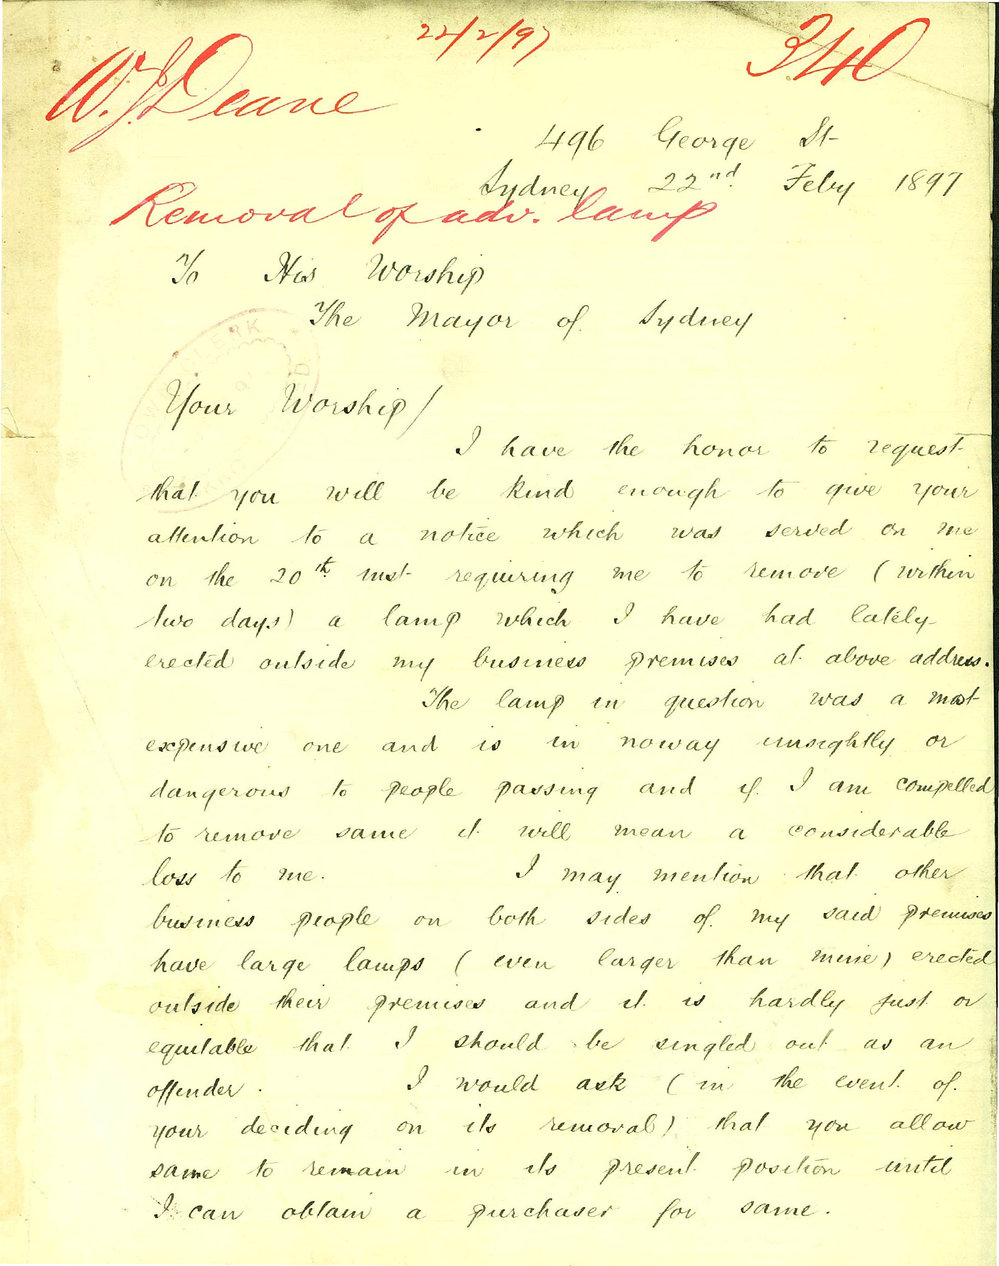 22/2/97
340
W. J. Deane
496 George St
Sydney 22nd. Feby 1897
Removal of adv. lamp
To His Worship
The Mayor of Sydney
CLERK
Your Worship/
I have the honor to request
that you will be kind enough to give your
attention to a notice which was served on me
on the 20th inst requiring me to remove (within
two days) a lamp which I have had lately
erected outside my business premises at above address.
The lamp in question was a most
expensive one and is in noway unsightly or
dangerous to people passing and if I am compelled
to remove same it will mean a considerable
loss to me. I may mention that other
business people on both sides of my said premises
have large lamps (even larger than mine) erected
outside their premises and it is hardly just or
equitable that I should be singled out as an
offender. I would ask (in the event of
your deciding on its removal) that you allow
same to remain in its present position until
I can obtain a purchaser for same.